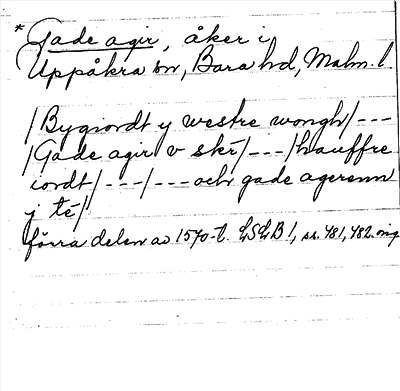 * Gade agir, åker i
Uppåkra sn, Bara hd, Malm. l.
/Bygiordt y westre wongh/---
/Gade agir v skr/---/hauffre
iordt/---/---och gade agerenn
j té/
förra delen av 1570-t. LSLB 1, s. 481, 482. orig